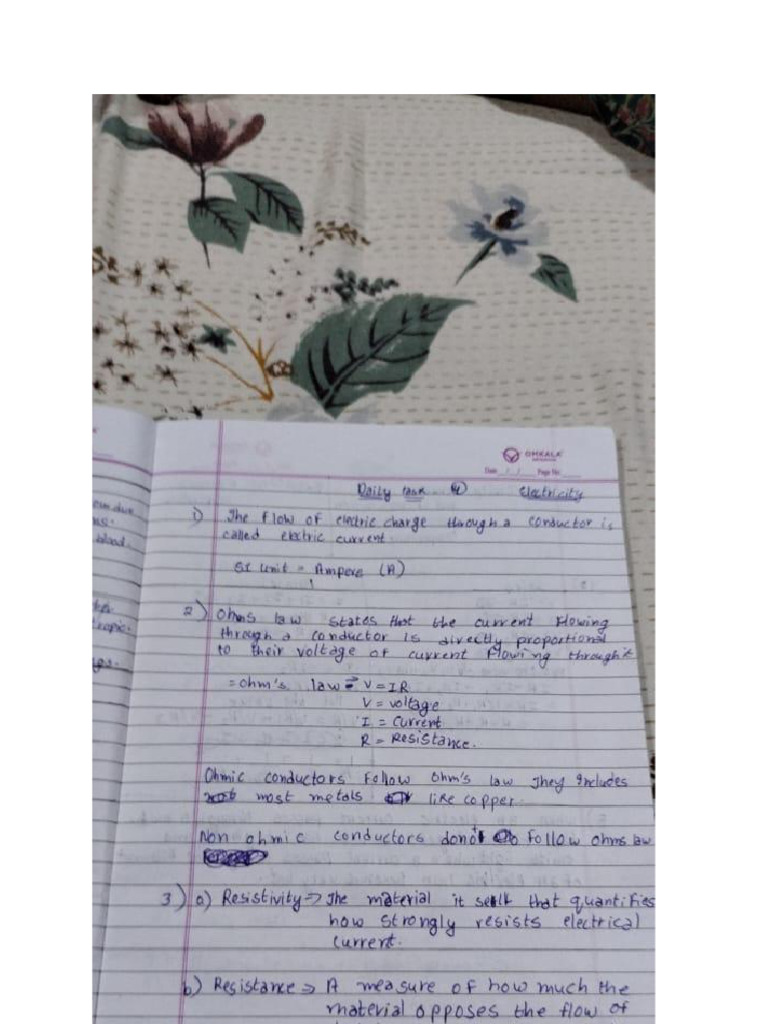 OMKALA
Date / / Page No.
Daily task Electricity
1) The flow of electric charge through a conductor is
called electric current
SI unit = Ampere (A)
2) Ohms law states that the current flowing
through a conductor is directly proportional
to their voltage of current flowing through it
= ohm's law = V = IR
V = voltage
I = Current
R = Resistance.
Ohmic conductors follow ohm's law They includes
most metals like copper
Non ohmic conductors donot follow ohms law
3) a) Resistivity => The material it self that quantifies
how strongly resists electrical
current.
b) Resistance => A measure of how much the
material opposes the flow of